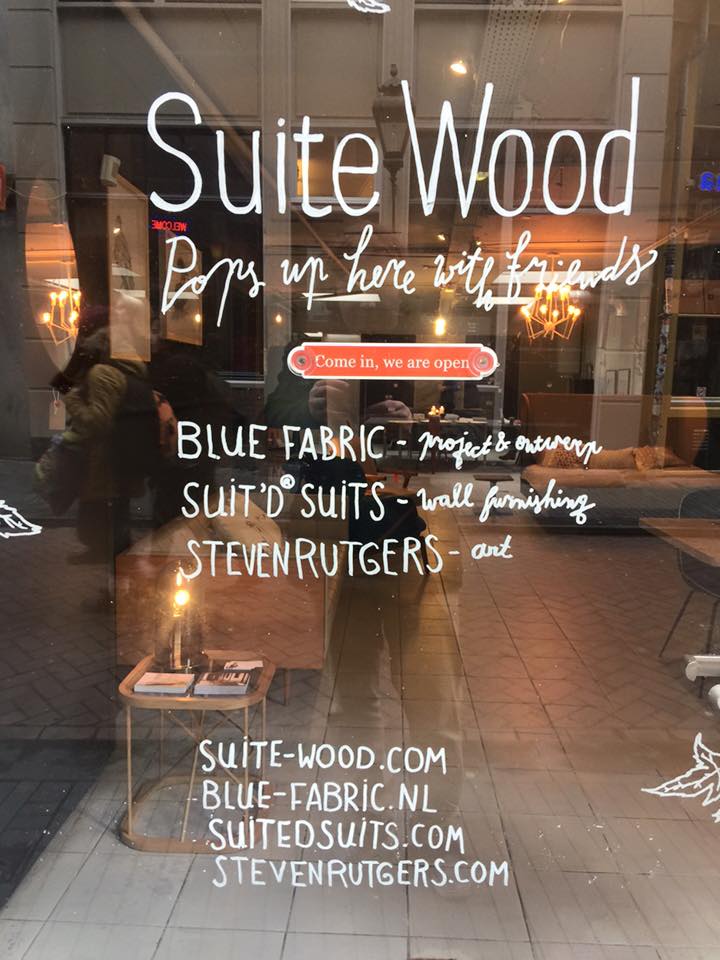 Suite Wood
Pops up here with friends
WELCOME
Come in, we are open
BLUE FABRIC - project & ontwerp
SUIT'D® SUITS - wall furnishing
STEVENRUTGERS - art
SUITE-WOOD.COM
BLUE-FABRIC.NL
SUITEDSUITS.COM
STEVENRUTGERS.COM